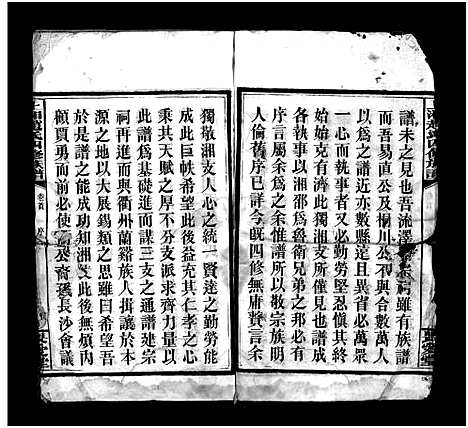 譜未之見也吾流澤
而吾易直公及桐川公不與合數萬人
以爲之譜近亦數縣
一心而執事者又必勤勞堅忍愼其終
始始克有濟此湘支所僅見也譜成
各執事以湘邵爲魯衛兄弟之邦都
序言屬余爲之余述宗法所以敬宗族明
人倫舊序已詳今旣四修無庸贅言余
獨敬湘支人心之統一賢達之勤勞能
成此巨帙希望此後益充其仁孝之心
乘其天賦之厚不分支派求齊力量以
此譜爲基礎進而謀三支之通譜建宗
祠再進而與衢州蘭谿族人揖讓於本
源之地以大展錫類之思雖曰希望吾
於是譜之能成知湘支此後無煩內
顧賈勇而前必使
裔瑛長沙會議